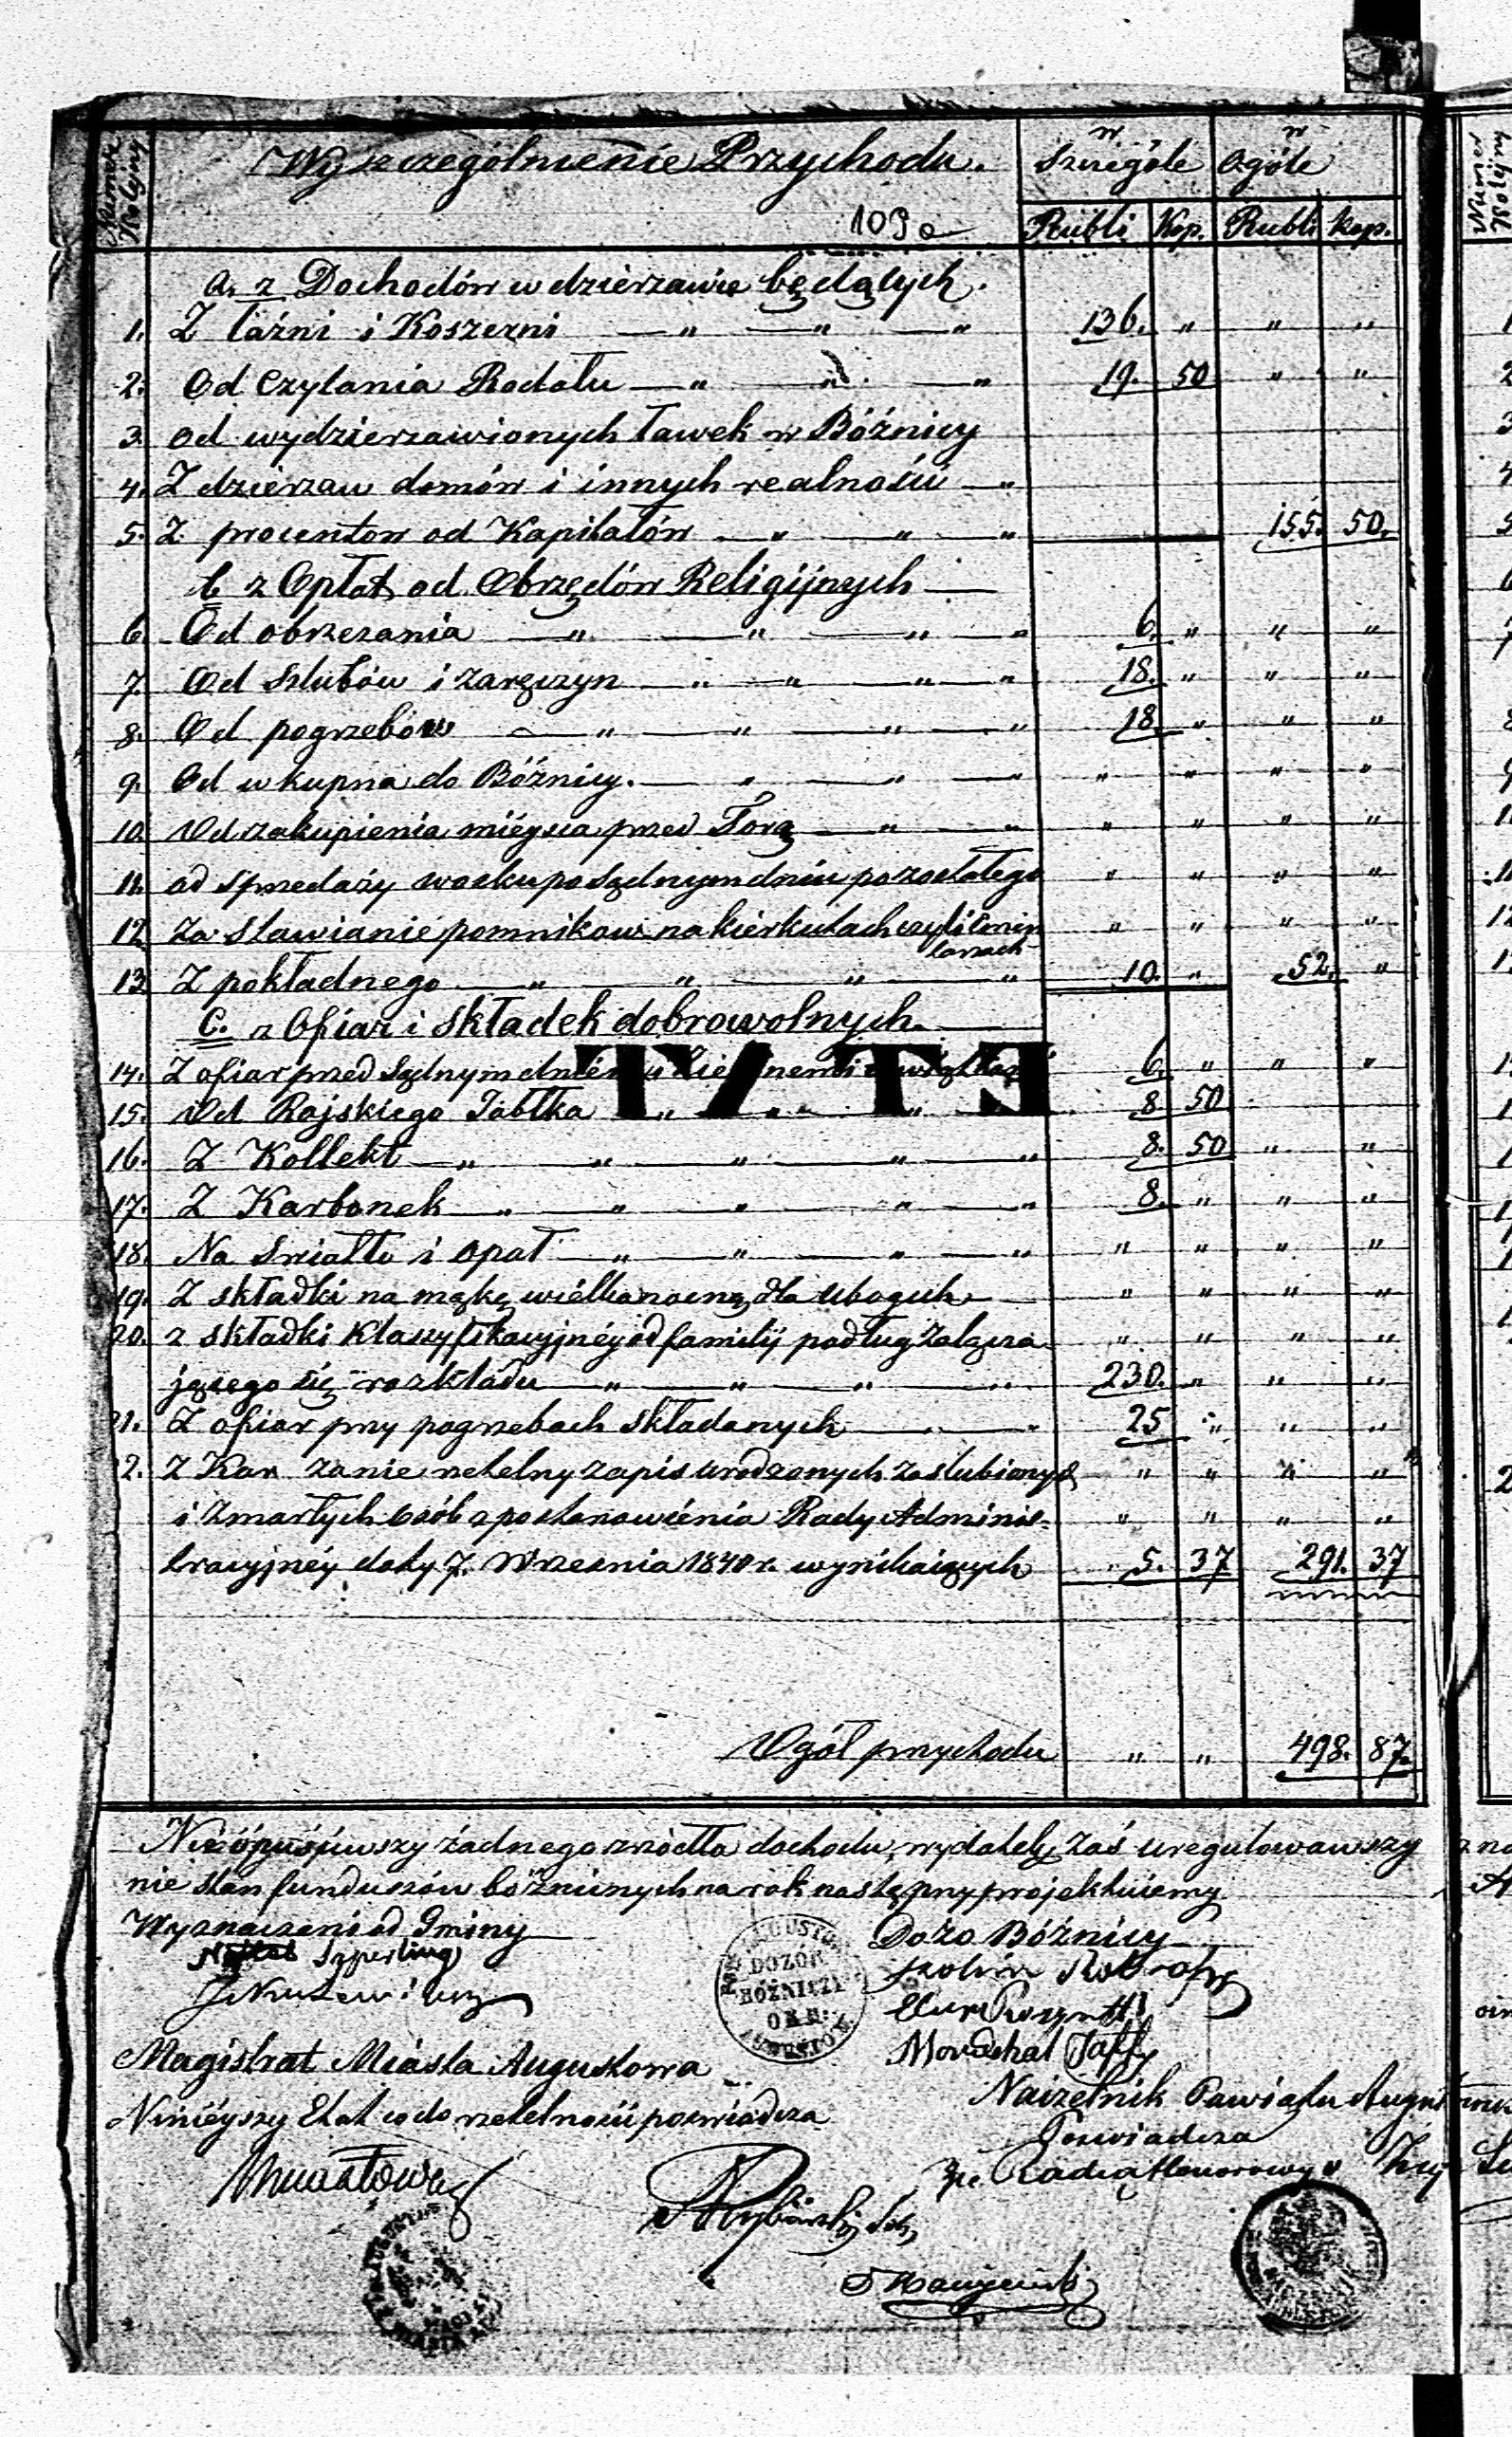 Numer Kolejny
Wyszczególnienie Przychodu.
w Szczególe
w Ogóle
109a
Rubli Kop. Rubli kop.
a. z Dochodów w dzierzawie będących.
1. Z łaźni i Koszerni — „ — „ — „ 136. „ „ „
2. Od Czytania Rodału — „ — „ — „ 19. 50 „ „
3. od wydzierzawionych ławek w Bóźnicy
4. Z dzierzaw domów i innych realności — „
5. Z procentow od Kapitałów — „ — „ — „ 155. 50.
b z Opłat od Obrzędów Religijnych —
6. Od obrzezania — „ — „ — „ — „ 6. „ „ „
7. Od szlubów i zaręczyn — „ — „ — „ — „ 18. „ „ „
8. Od pogrzebów — „ — „ — „ — „ 18. „ „ „
9. Od wkupna do Bóźnicy. — „ — „ — „ „ „ „ „
10. Od zakupienia miéysca przed Torą — „ — „ „ „ „ „
11. od sprzedaży wosku po sądnym dniu pozostałego „ „ „ „
12. Za stawianie pomnikow na kierkutach czyli Cmen „ „ „ „
tarzach
13. Z pokładnego — „ „ — „ — „ 10. „ 52. „
C. z Ofiar i składek dobrowolnych. —
14. Z ofiar przed Sądnym dniem 6. „ „ „
15. Od Rajskiego Jabłka „ „ 8 50
16. Z Kollekt — „ — „ — „ — „ — „ 8. 50 „ „
17. Z Karbonek — „ — „ — „ — „ — „ 8. „ „ „
18. Na Swiatło i opał — „ — „ — „ — „ „ „ „ „
19. Z składki na mąkę wielkanocną dla Ubogich — „ „ „ „
20. z składki Klassyfikacyjnéy od familij podług załącza „ „ „ „
jącego się rozkładu — „ — „ — „ — „ 230. „ „ „
21. Z ofiar przy pogrzebach składanych — „ 25 „ „ „
22. Z Kar za nie rzetelny zapis urodzonych zaslubionych „ „ „ „
i zmarłych osób z postanowiénia Rady Adminis- „ „ „ „
tracyjnéy daty 7. Września 1840 r. wynikaiących 5. 37 291. 37
Ogół przychodu „ „ 498. 87.
TYTE
Nieopuściwszy żadnego zrzódła dochodu, wydatek zaś uregulowawszy
nie stan funduszów bóżnicznych na rok następny projektuiemy
Wyznaczeni od Gminy
Dozo Bóżnicy
Szperling
Mordchal Jaffy
AUGUSTO
DOZÓR
BÓŻNICZY
OKR:
AUGUSTO
Magistrat Miasta Augustowa
Ninieyszy Etat co do rzetelności poswiadcza
Naczelnik Powiatu
Poswiadcza
Radca Honorowy